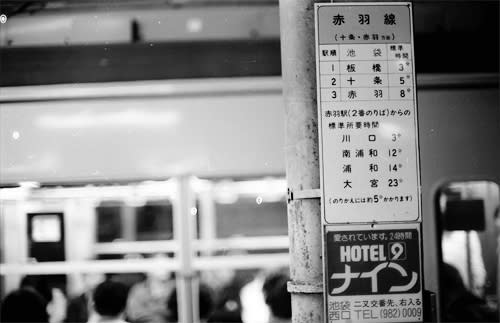 赤羽線
(十条・赤羽方面)
駅順 池袋 標準時間
1 板橋 3°
2 十条 5°
3 赤羽 8°
赤羽駅(2番のりば)からの
標準所要時間
川口 3°
南浦和 12°
浦和 14°
大宮 23°
(のりかえには約5°かかります)
愛されています。24時間
HOTEL 9
ナイン
池袋西口 二又交番先、右入る
TEL(982)0009